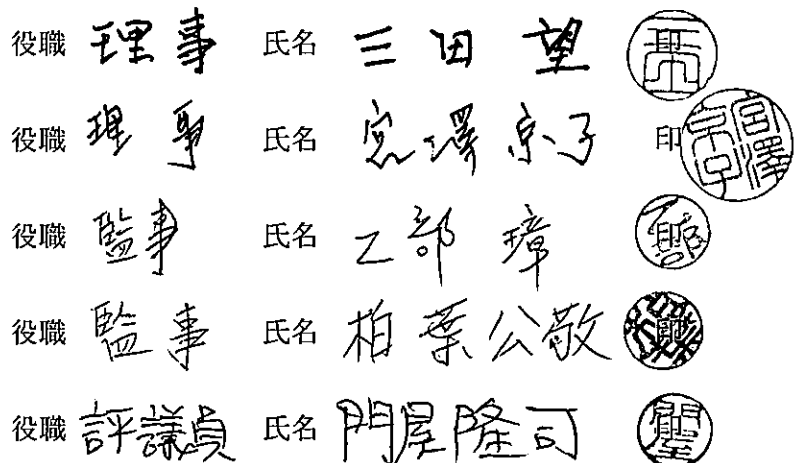 役職 理事 氏名 三田 望 印
役職 理事 氏名 宮澤 京子 印
役職 監事 氏名 乙部 璋 印
役職 監事 氏名 柏葉 公敬 印
役職 評議員 氏名 門屋隆司 印